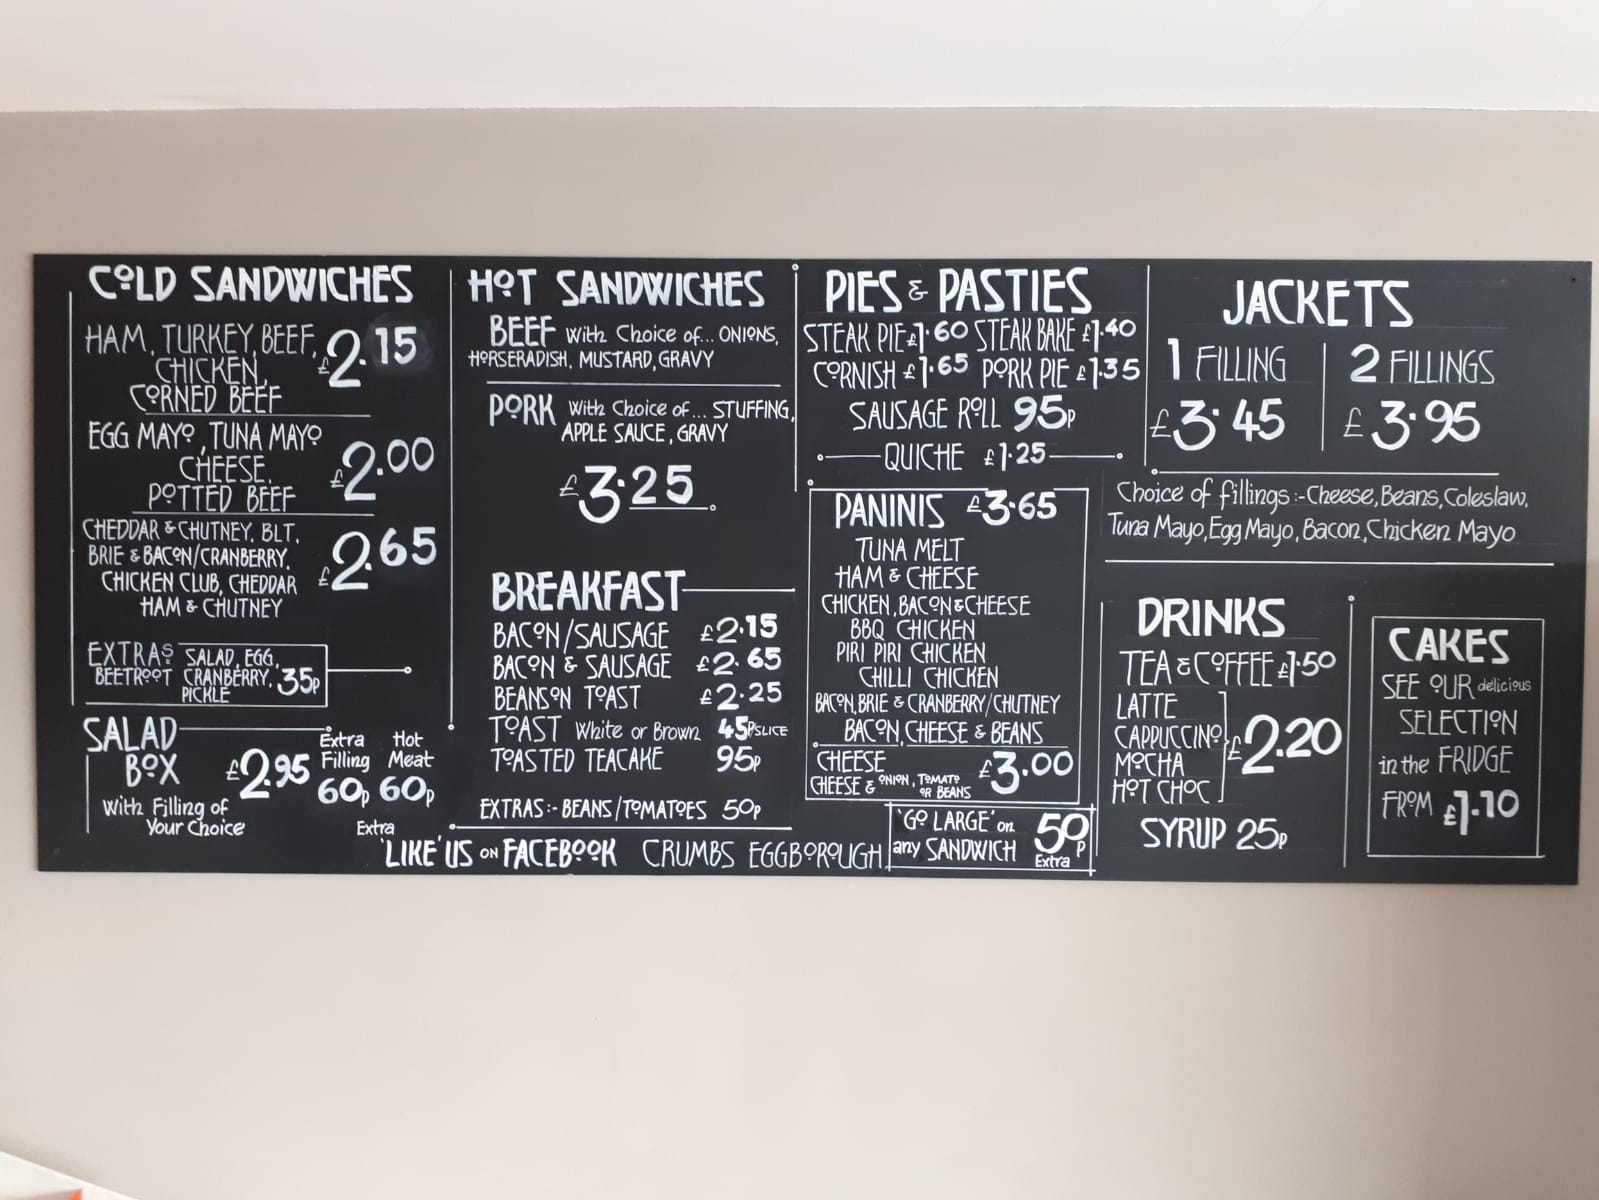 COLD SANDWICHES
HAM, TURKEY, BEEF, £2.15
CHICKEN,
CORNED BEEF
EGG MAYO, TUNA MAYO
CHEESE, £2.00
POTTED BEEF
CHEDDAR & CHUTNEY, BLT,
BRIE & BACON/CRANBERRY, £2.65
CHICKEN CLUB, CHEDDAR
HAM & CHUTNEY
EXTRAS SALAD, EGG,
BEETROOT CRANBERRY, 35p
PICKLE
SALAD
BOX £2.95
With Filling of
Your Choice
Extra Filling 60p
Hot Meat 60p
Extra
HOT SANDWICHES
BEEF With Choice of... ONIONS,
HORSERADISH, MUSTARD, GRAVY
PORK With Choice of... STUFFING,
APPLE SAUCE, GRAVY
£3.25
BREAKFAST
BACON/SAUSAGE £2.15
BACON & SAUSAGE £2.65
BEANS ON TOAST £2.25
TOAST White or Brown 45P SLICE
TOASTED TEACAKE 95p
EXTRAS:- BEANS/TOMATOES 50p
PIES & PASTIES
STEAK PIE £1.60 STEAK BAKE £1.40
CORNISH £1.65 PORK PIE £1.35
SAUSAGE ROLL 95p
QUICHE £1.25
PANINIS £3.65
TUNA MELT
HAM & CHEESE
CHICKEN, BACON & CHEESE
BBQ CHICKEN
PIRI PIRI CHICKEN
CHILLI CHICKEN
BACON, BRIE & CRANBERRY/CHUTNEY
BACON, CHEESE & BEANS
CHEESE £3.00
CHEESE & ONION, TOMATO
OR BEANS
'GO LARGE' on
any SANDWICH 50p
Extra
JACKETS
1 FILLING
£3.45
2 FILLINGS
£3.95
Choice of fillings:- Cheese, Beans, Coleslaw,
Tuna Mayo, Egg Mayo, Bacon, Chicken Mayo
DRINKS
TEA & COFFEE £1.50
LATTE
CAPPUCCINO £2.20
MOCHA
HOT CHOC
SYRUP 25p
CAKES
SEE OUR delicious
SELECTION
in the FRIDGE
FROM £1.10
'LIKE' US ON FACEBOOK CRUMBS EGGBOROUGH